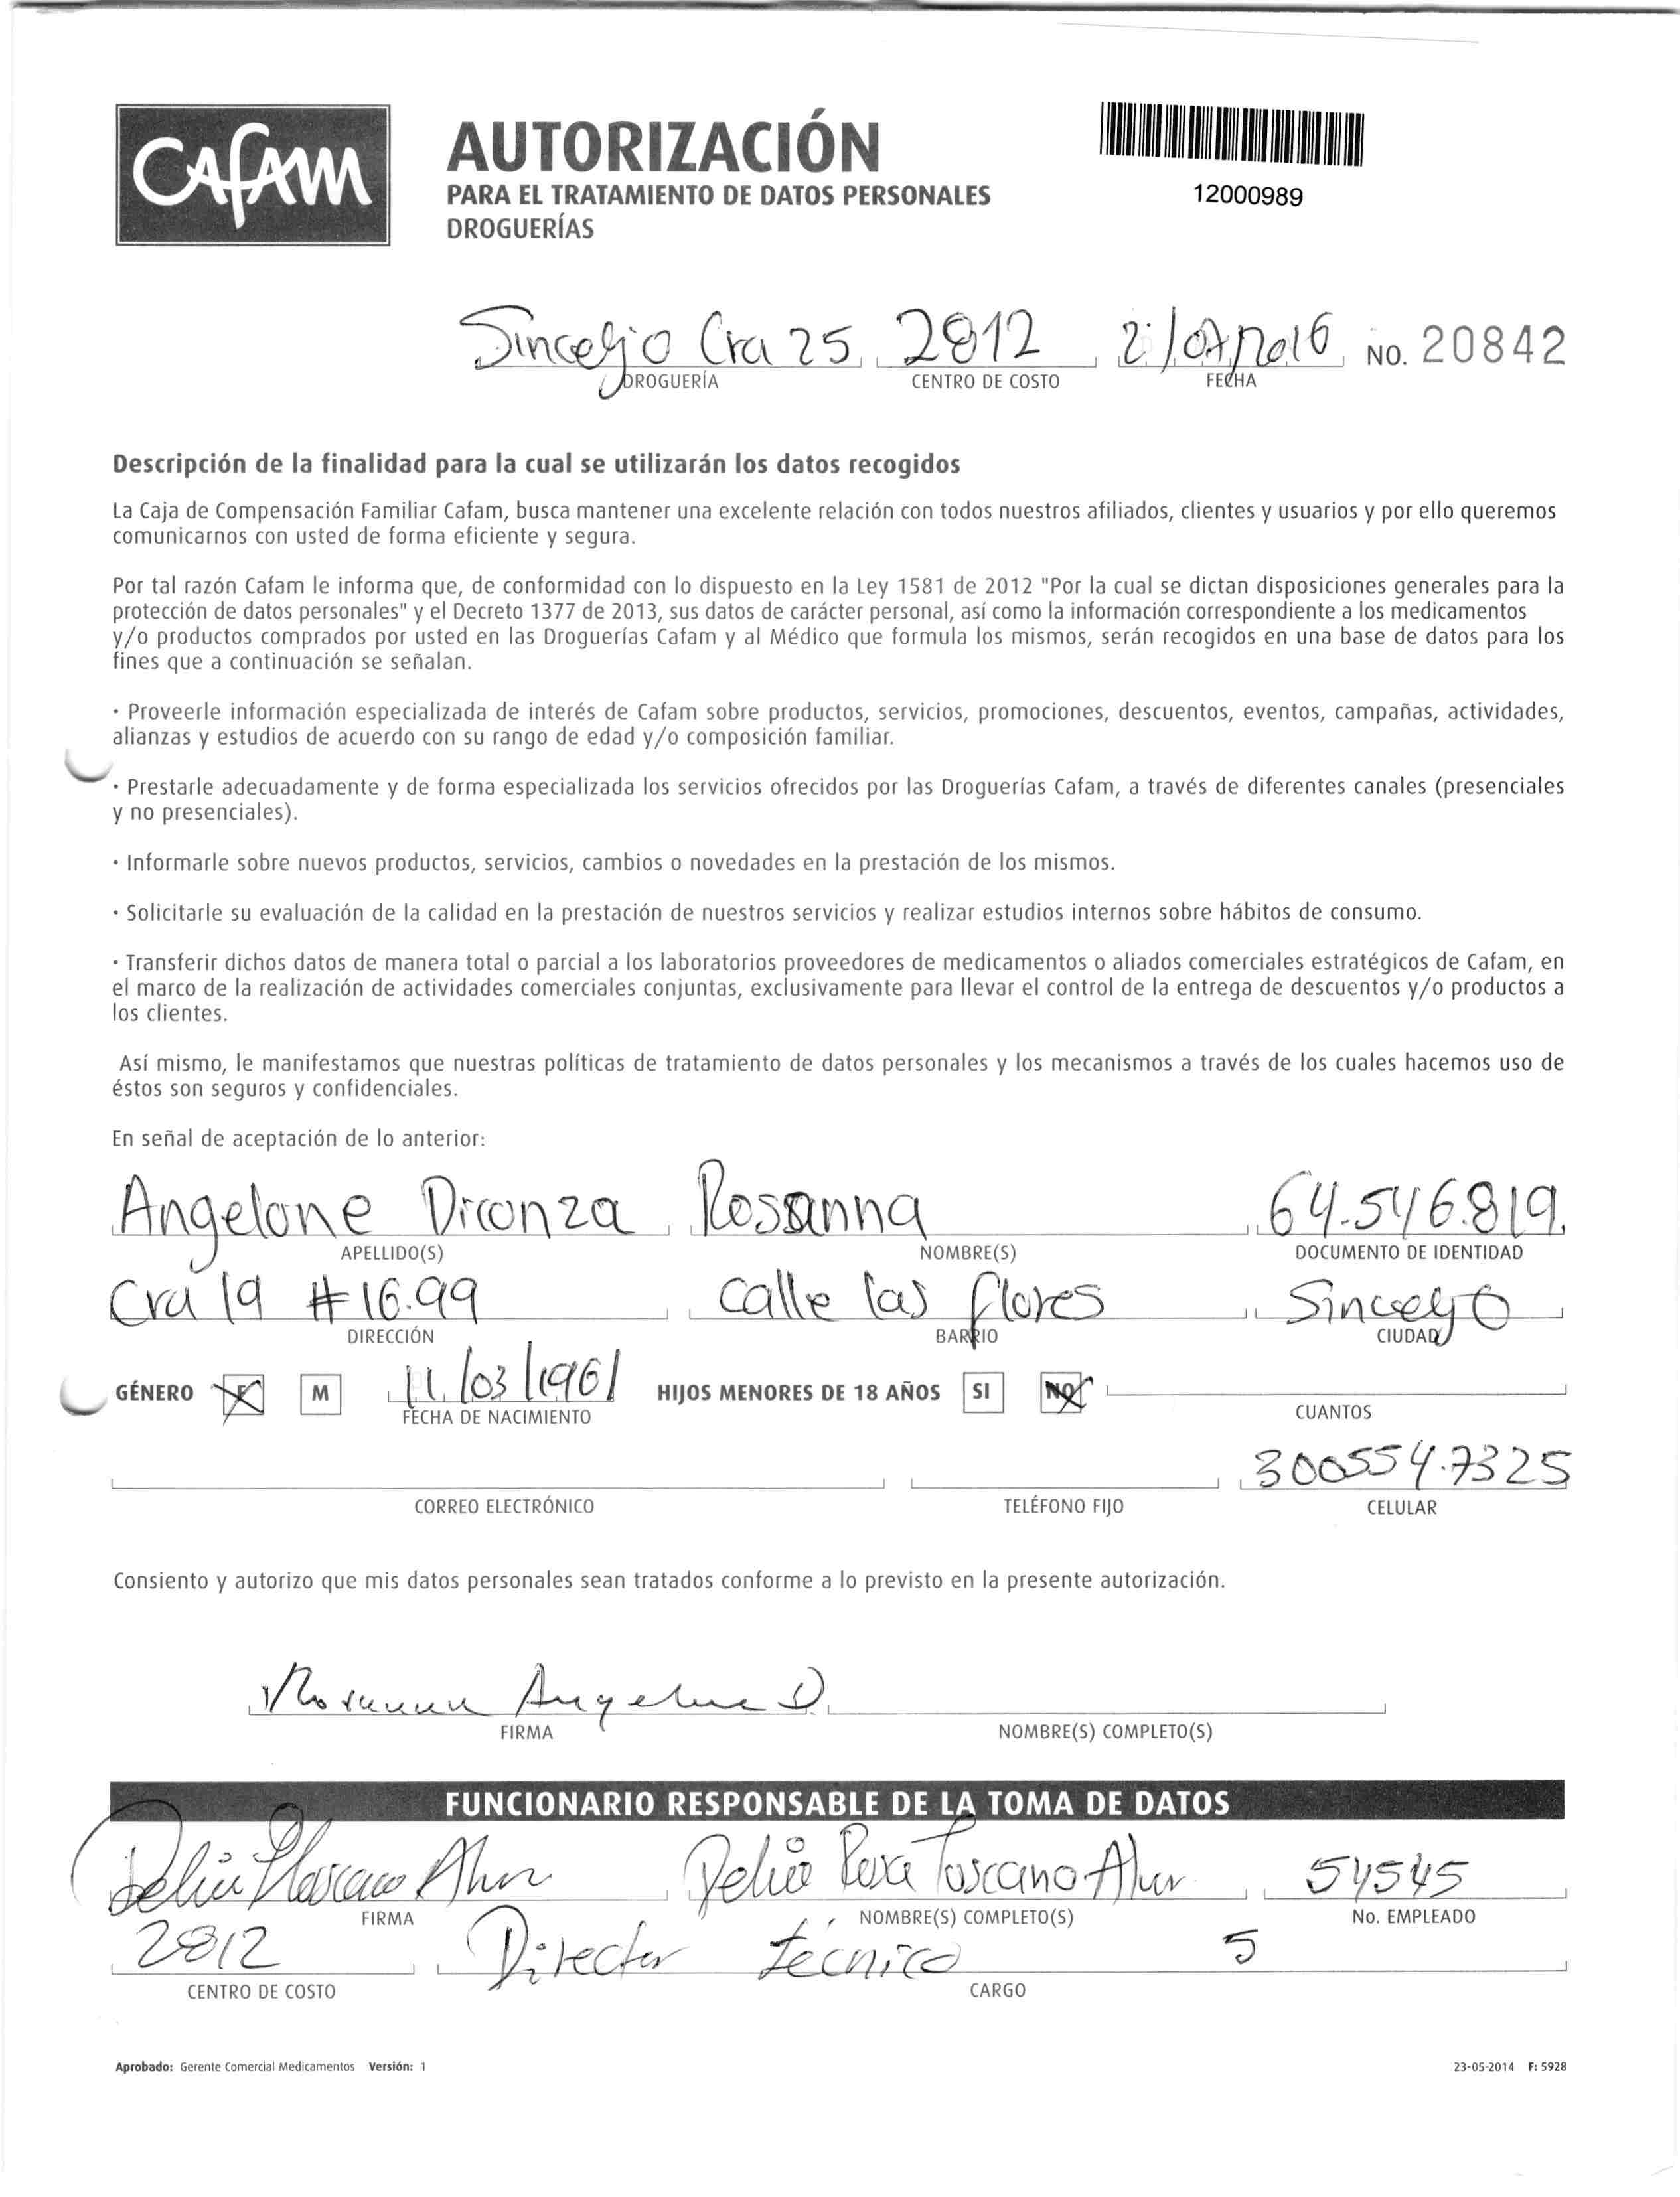 CAFAM
AUTORIZACIÓN
PARA EL TRATAMIENTO DE DATOS PERSONALES
DROGUERÍAS
12000989
Sincelejo Cra 25 2812 No. 20842
DROGUERÍA CENTRO DE COSTO FECHA
Descripción de la finalidad para la cual se utilizarán los datos recogidos
La Caja de Compensación Familiar Cafam, busca mantener una excelente relación con todos nuestros afiliados, clientes y usuarios y por ello queremos
comunicarnos con usted de forma eficiente y segura.
Por tal razón Cafam le informa que, de conformidad con lo dispuesto en la Ley 1581 de 2012 "Por la cual se dictan disposiciones generales para la
protección de datos personales" y el Decreto 1377 de 2013, sus datos de carácter personal, así como la información correspondiente a los medicamentos
y/o productos comprados por usted en las Droguerías Cafam y al Médico que formula los mismos, serán recogidos en una base de datos para los
fines que a continuación se señalan.
· Proveerle información especializada de interés de Cafam sobre productos, servicios, promociones, descuentos, eventos, campañas, actividades,
alianzas y estudios de acuerdo con su rango de edad y/o composición familiar.
· Prestarle adecuadamente y de forma especializada los servicios ofrecidos por las Droguerías Cafam, a través de diferentes canales (presenciales
y no presenciales).
· Informarle sobre nuevos productos, servicios, cambios o novedades en la prestación de los mismos.
· Solicitarle su evaluación de la calidad en la prestación de nuestros servicios y realizar estudios internos sobre hábitos de consumo.
· Transferir dichos datos de manera total o parcial a los laboratorios proveedores de medicamentos o aliados comerciales estratégicos de Cafam, en
el marco de la realización de actividades comerciales conjuntas, exclusivamente para llevar el control de la entrega de descuentos y/o productos a
los clientes.
Así mismo, le manifestamos que nuestras políticas de tratamiento de datos personales y los mecanismos a través de los cuales hacemos uso de
éstos son seguros y confidenciales.
En señal de aceptación de lo anterior:
Angelone Diconza Rosanna 64.546.819.
APELLIDO(S) NOMBRE(S) DOCUMENTO DE IDENTIDAD
Cra 19 # 16.99 Calle las flores Sincelejo
DIRECCIÓN BARRIO CIUDAD
GÉNERO F M 11/03/1961 HIJOS MENORES DE 18 AÑOS SI NO
FECHA DE NACIMIENTO CUANTOS
300554.7325
CORREO ELECTRÓNICO TELÉFONO FIJO CELULAR
Consiento y autorizo que mis datos personales sean tratados conforme a lo previsto en la presente autorización.
Rosanna Angelone D.
FIRMA NOMBRE(S) COMPLETO(S)
FUNCIONARIO RESPONSABLE DE LA TOMA DE DATOS
Toscano 54545
FIRMA NOMBRE(S) COMPLETO(S) No. EMPLEADO
2812 Director técnico 5
CENTRO DE COSTO CARGO
Aprobado: Gerente Comercial Medicamentos Versión: 1 23-05-2014 F: 5928